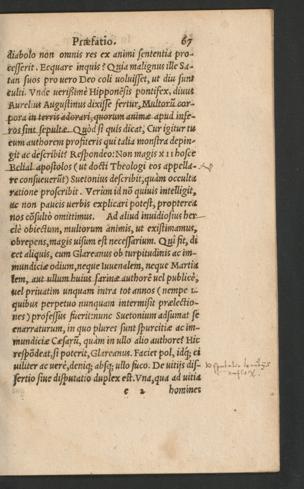 Præfatio. 67
diabolo non omnis res ex animi sententia pro-
cesserit. Ecquare inquis? Quia malignus ille Sa-
tan suos pro uero Deo coli uoluisset, ut diu sunt
culti. Vnde uerißimè Hipponensis pontifex, diuus
Aurelius Augustinus dixisse fertur, Multorū cor-
pora in terris adorari, quorum animæ apud infe-
ros sint sepultæ. Quòd si quis dicat, Cur igitur tu
eum authorem profiteris qui talia monstra depin-
git ac describit? Respondeo: Non magis hosce
Belial apostolos (ut docti Theologi eos appella-
re consueuerūt) Suetonius describit, quàm occulta
ratione proscribit. Verùm id nō quiuis intelligit,
ac non paucis uerbis explicari potest, propterea
nos cōsultò omittimus. Ad aliud inuidiosius her-
clè obiectum, multorum animis, ut existimamus,
obrepens, magis uisum est necessarium. Qui fit, di
cet aliquis, cum Glareanus ob turpitudinis ac im-
mundiciæ odium, neque Iuuenalem, neque Martia
lem, aut ullum huius farinæ authorē uel publicè,
uel priuatim unquam intra tot annos (nempe
quibus perpetuo nunquam intermisit prælectio-
nes) professus fuerit: nunc Suetonium adsumat se
enarraturum, in quo plures sunt spurcitiæ ac im-
mundiciæ Cæsarū, quàm in ullo alio authore? Hic
respōdeat, si poterit, Glareanus. Faciet pol, idq́; ci
uiliter ac uerè, deniq; absq́; ullo fuco. De uitijs dis-
sertio siue disputatio duplex est. Vna, qua ad uitia
e 2 homines